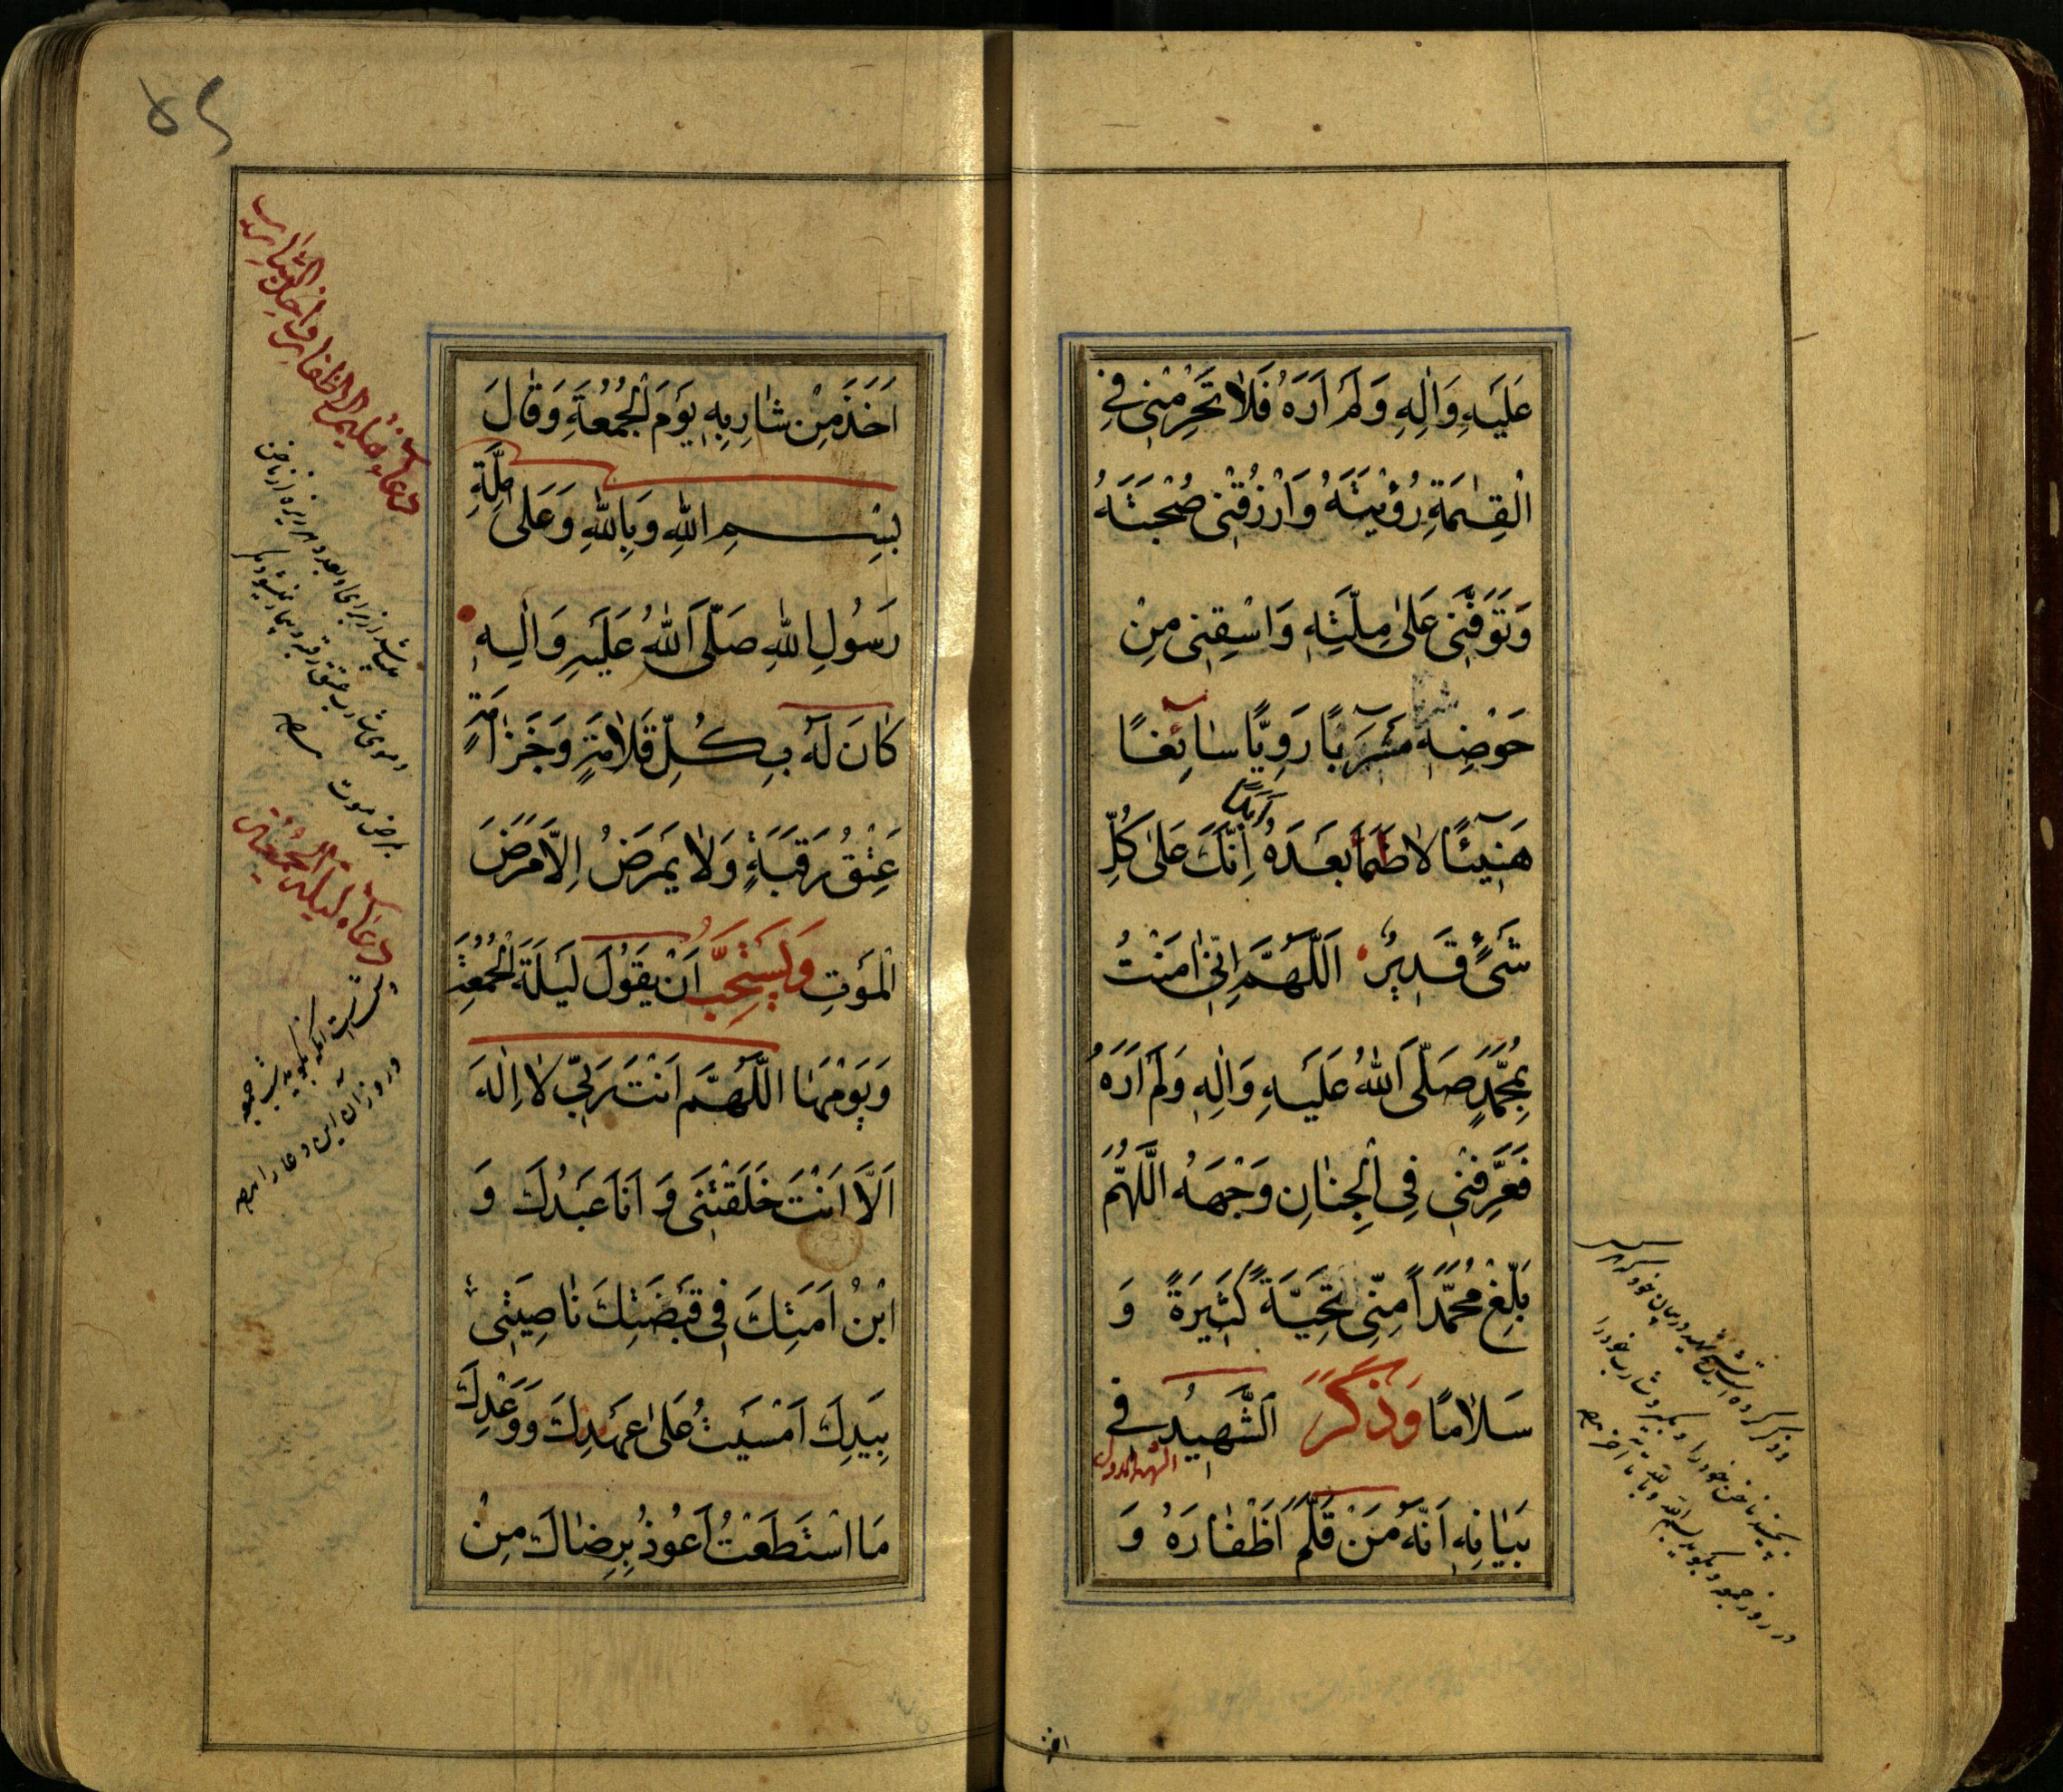 عَلَيْهِ وَاٰلِهِ وَلَمْ اَرَهُ فَلاٰ تَحْرِمْنِى فِى
الْقِيٰمَةِ رُؤْيَتَهُ وَارْزُقْنِى صُحْبَتَهُ
وَتَوَفَّنِى عَلىٰ مِلَّتِهِ وَاسْقِنِى مِنْ
حَوْضِهِ مَشْرَبًا رَوِيًّا سٰائِغًا
هَنِيئًا لاٰ ظَمَأَ بَعْدَهُ اَبَدًا اِنَّكَ عَلىٰ كُلِّ
شَىْءٍ قَدِيرٌ اَللّٰهُمَّ اِنِّى اٰمَنْتُ
بِمُحَمَّدٍ صَلَّى اللهُ عَلَيْهِ وَاٰلِهِ وَلَمْ اَرَهُ
فَعَرِّفْنِى فِى الْجِنٰانِ وَجْهَهُ اللّٰهُمَّ
بَلِّغْ مُحَمَّدًا مِنِّى تَحِيَّةً كَثِيرَةً وَ
سَلاٰمًا وَذَكَرَ الشَّهِيدُ فِى
بَيٰانِهِ اَنَّهُ مَنْ قَلَّمَ اَظْفٰارَهُ وَ
اخذ
۵۶
اَخَذَ مِنْ شٰارِبِهِ يَوْمَ الْجُمُعَةِ وَقٰالَ
بِسْمِ اللهِ وَبِاللهِ وَعَلىٰ مِلَّةِ
رَسُولِ اللهِ صَلَّى اللهُ عَلَيْهِ وَاٰلِهِ
كٰانَ لَهُ بِكُلِّ قَلاٰمَةٍ وَجَزٰازَةٍ
عِتْقُ رَقَبَةٍ وَلاٰ يَمْرَضُ اِلاَّ مَرَضَ
الْمَوْتِ وَيُسْتَحَبُّ اَنْ يَقُولَ لَيْلَةَ الْجُمُعَةِ
وَيَوْمَهٰا اللّٰهُمَّ اَنْتَ رَبِّى لاٰ اِلٰهَ
اِلاَّ اَنْتَ خَلَقْتَنِى وَ اَنَا عَبْدُكَ وَ
ابْنُ اَمَتِكَ فِى قَبْضَتِكَ نٰاصِيَتِى
بِيَدِكَ اَمْسَيْتُ عَلىٰ عَهْدِكَ وَوَعْدِكَ
مَا اسْتَطَعْتُ اَعُوذُ بِرِضٰاكَ مِنْ
دعاء تقليم الاظفار و اخذ الشارب
دعاء ليلة الجمعة